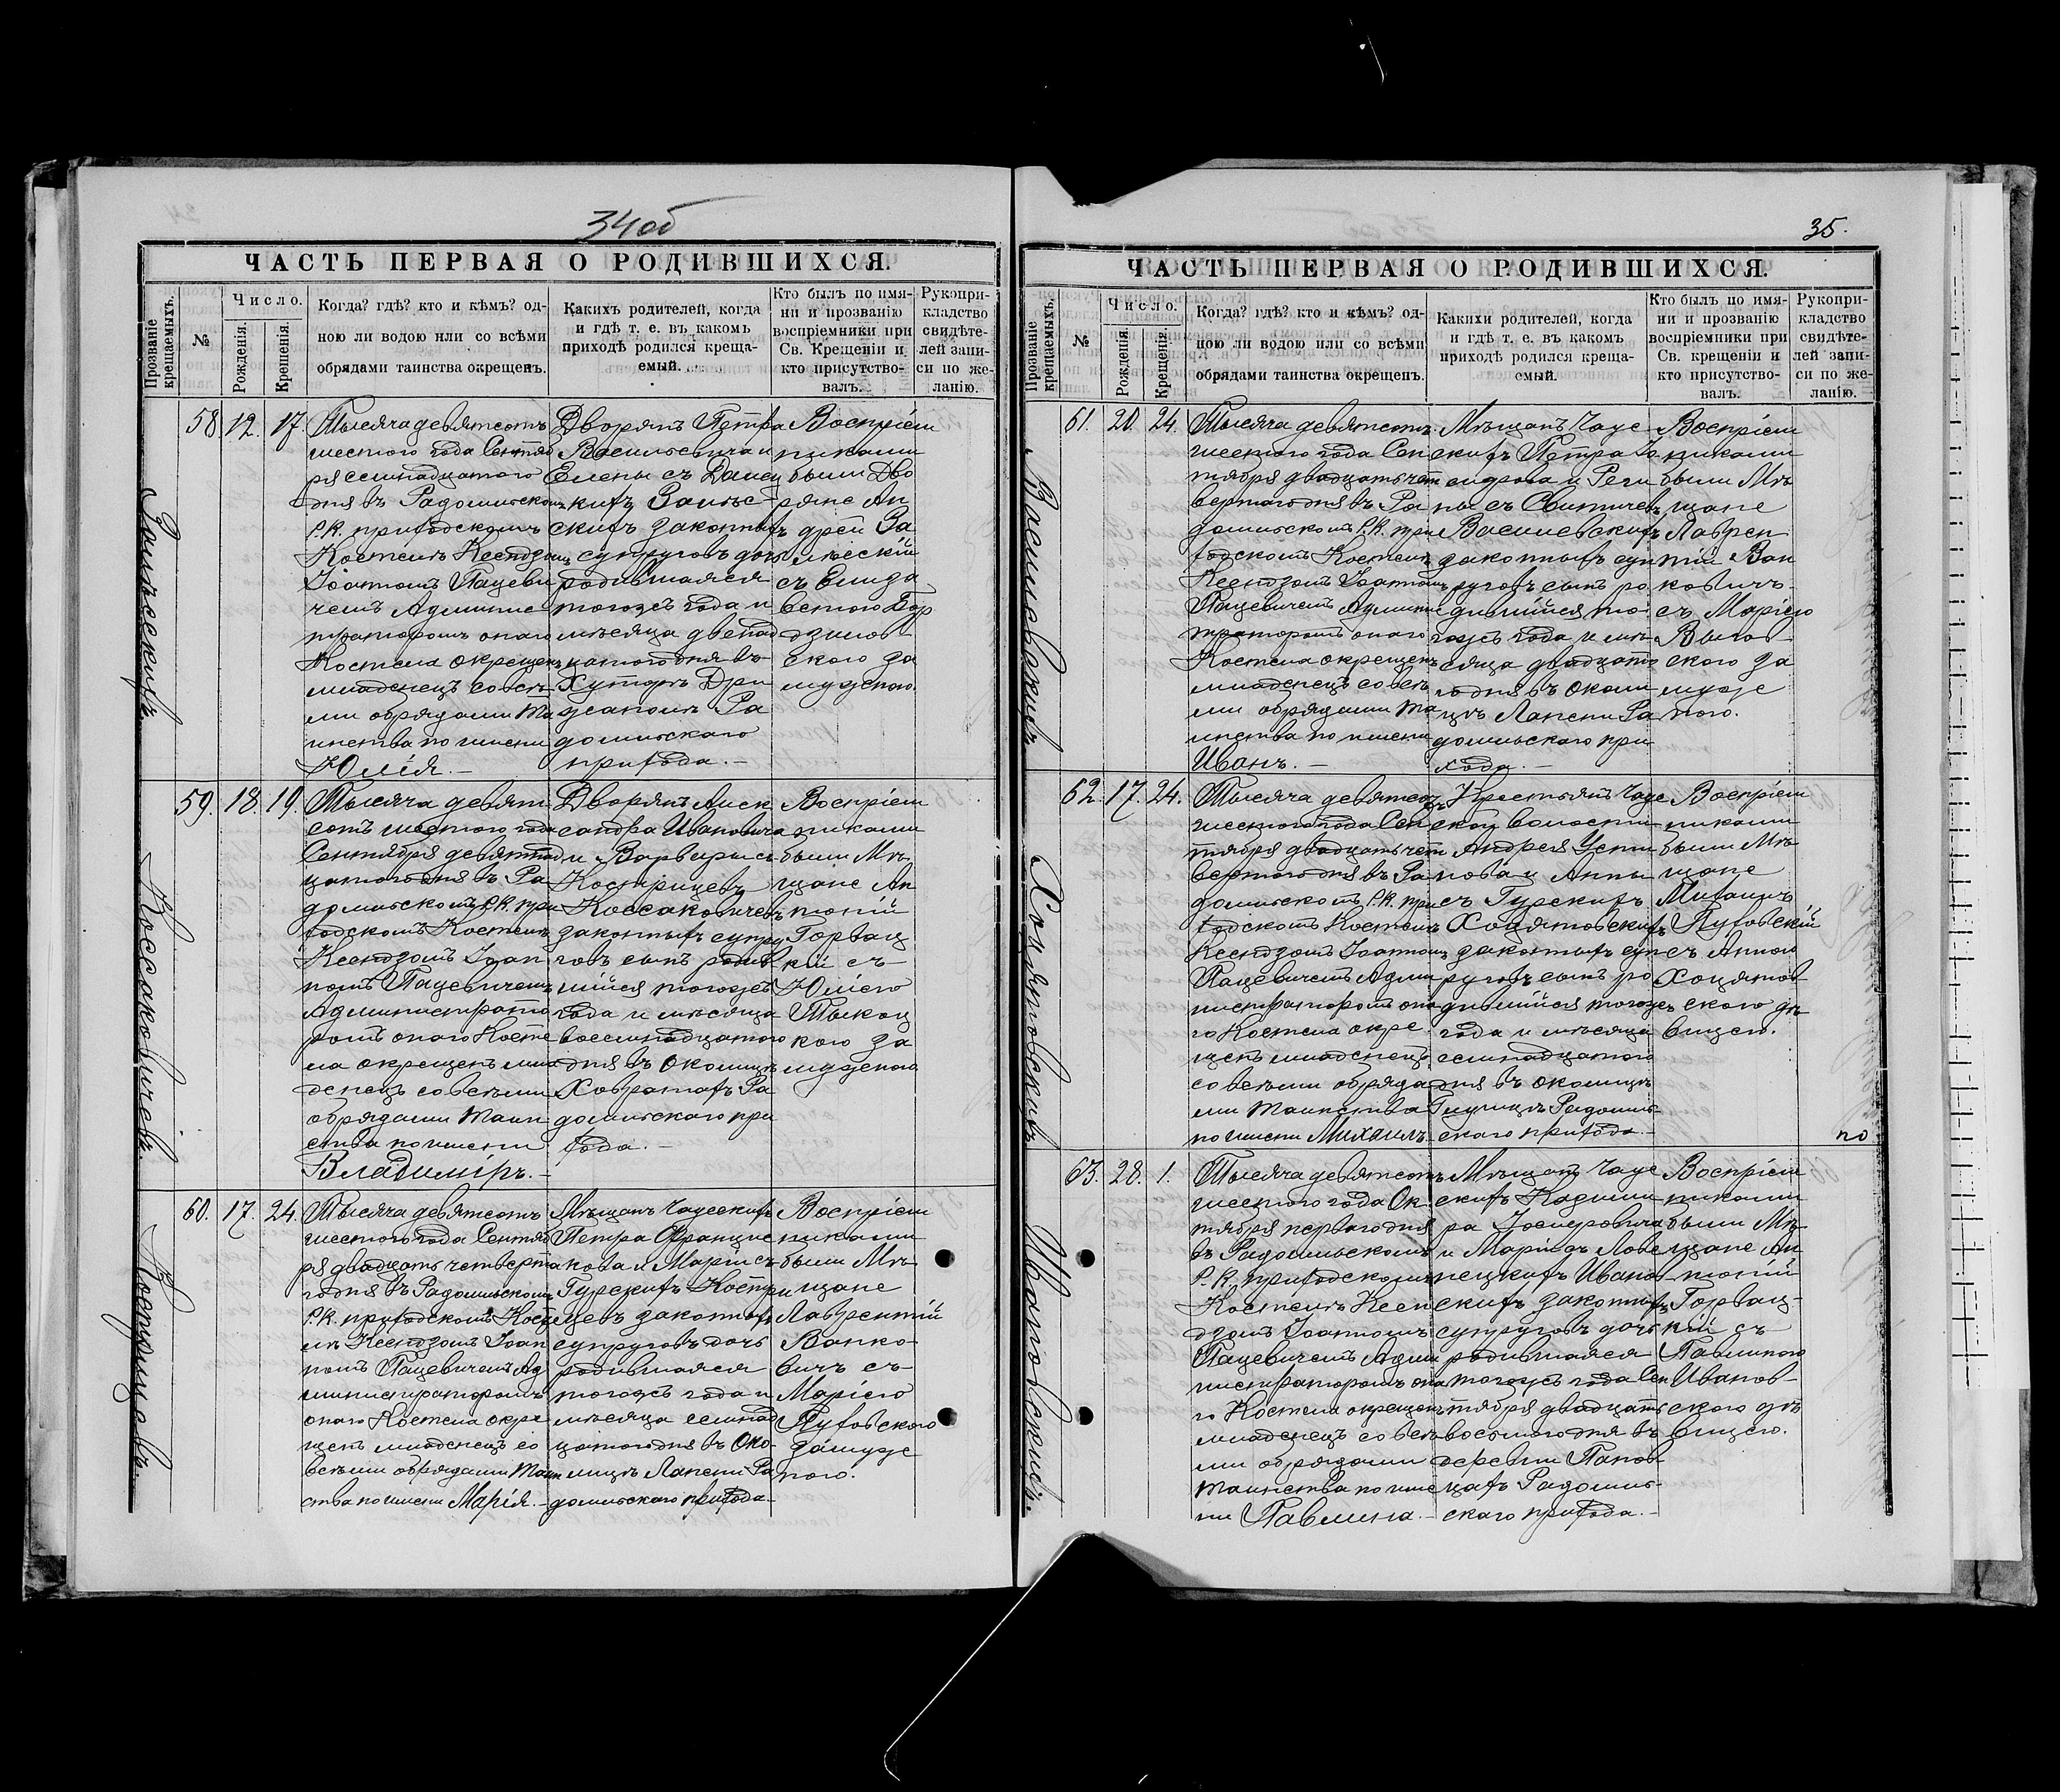 34об
ЧАСТЬ ПЕРВАЯ О РОДИВШИХСЯ.
Прозваніе крещаемыхъ.
№
Число.
Рожденія.
Крещенія.
Когда? гдѣ? кто и кѣмъ? од-
ною ли водою или со всѣми
обрядами таинства окрещенъ.
Какихъ родителей, когда
и гдѣ т. е. въ какомъ
приходѣ родился креща-
емый.
Кто былъ по имя-
ни и прозванію
воспріемники при
Св. Крещеніи и
кто присутство-
валъ.
Рукопри-
кладство
свидѣте-
лей запи-
си по же-
ланію.
58. 12. 17.
Тысяча девятсотъ
шестого года Сентяб
ря семнадцатого
дня въ Радомльском
Р.К. приходскомъ
Костелѣ Ксендзомъ
Іоанномъ Пацеви
чемъ Админис
траторомъ онаго
Костела окрещенъ
младенецъ со всѣ
ми обрядами Та
инства по имени
Юлія.—
Дворянъ Петра
Васильевича и
Елены съ
скихъ законныхъ
супруговъ дочь
родившаяся
тогожъ года и
мѣсяца двенад
цатого дня въ
Хуторѣ
Ра
домльскаго
прихода.—
Воспріем
никами
были Дво
ряне Ан
дрей За
лѣсскій
съ Елиза
ветою
ского за
мужною.
59. 18. 19.
Коссаковичевъ.
Тысяча девят
сотъ шестого года
Сентября девятнад
цатого дня въ Ра
домльскомъ Р.К. при
ходскомъ Костелѣ
Ксендзомъ Іоан
номъ Пацевичемъ
Администрато
ромъ онаго Косте
ла окрещенъ мла
денецъ со всѣми
обрядами Таин
ства по имени
Владиміръ.—
Дворянъ Алек
сандра Ивановича
и Варвары съ
Кострицевъ
Коссаковичевъ
законныхъ супру
говъ сынъ родив
шійся тогожъ
года и мѣсяца
восемнадцатого
дня въ Околицѣ
Ра
домльскаго при
хода.—
Воспріем
никами
были Мѣ
щане Ан
тоній
Горвац
кій съ
Юліею
кою за
мужною
60. 17. 24.
Кострицевъ.
Тысяча девятсотъ
шестого года Сентяб
ря двадцать четверта
го дня въ Радомльскомъ
Р.К. приходскомъ Косте
лѣ Ксендзомъ Іоан
номъ Пацевичемъ Ад
министраторомъ
онаго Костела окре
щенъ младенецъ со
всѣми обрядами Таин
ства по имени Марія.—
Мѣщанъ Чаусскихъ
Петра Францис
кова и Маріи съ
Гурскихъ Костри
цевъ законныхъ
супруговъ дочь
родившаяся
тогожъ года и
мѣсяца семнад
цатого дня въ Око-
лицѣ Лапени Ра
домльскаго прихода—
Воспріем
никами
были Мѣ
щане
Лаврентій
Ванко-
вичъ съ
Маріею
Пуховского
замуж
ною.
35.
ЧАСТЬ ПЕРВАЯ О РОДИВШИХСЯ.
Прозваніе крещаемыхъ.
№
Число.
Рожденія.
Крещенія.
Когда? гдѣ? кто и кѣмъ? од-
ною ли водою или со всѣми
обрядами таинства окрещенъ.
Какихи родителей, когда
и гдѣ т. е. въ какомъ
приходѣ родился креща-
емый.
Кто былъ по имя-
ни и прозванію
воспріемники при
Св. крещеніи и
кто присутство-
валъ.
Рукопри-
кладство
свидѣте-
лей запи-
си по же-
ланію.
61. 20. 24.
Василевскихъ.
Тысяча девятсотъ
шестого года Сен
тября двадцать чет
вертого дня въ Ра
домльскомъ Р.К. при
ходскомъ Костелѣ
Ксендзомъ Іоанномъ
Пацевичемъ Админис
траторомъ онаго
Костела окрещенъ
младенецъ со всѣ
ми обрядами Та
инства по имени
Иванъ.—
Мѣщанъ Чаус
скихъ Петра
и Реги
ны съ
Василевскихъ
законныхъ суп
руговъ сынъ ро
дившійся то
гожъ года и мѣ
сяца двадцато
го дня въ околи
цѣ Лапени Ра
домльскаго при
хода.—
Воспріем
никами
были Мѣ
щане
Лаврен
тій Ван
ковичъ
съ Маріею
ского за
муж
ною.
62. 17. 24.
Хоцяновскихъ
Тысяча девятсотъ
шестого года Сен
тября двадцать чет
вертого дня въ Ра
домльскомъ Р.К. при
ходскомъ Костелѣ
Ксендзомъ Іоанномъ
Пацевичемъ Адми
нистраторомъ она
го Костела окре
щенъ младенецъ
со всѣми обряда
ми Таинства
по имени Михаилъ
Крестьянъ Чаус
ской волости
Андрея Усти
нова и Анны
съ Гурскихъ
Хоцяновскихъ
законныхъ суп
руговъ сынъ ро
дившійся тогожъ
года и мѣсяца
семнадцатого
дня въ околицѣ
Радомль-
скаго прихода.—
Воспріем
никами
были Мѣ
щане
Михаилъ
Пуховскій
съ Анною
Хоцянов
ского дѣ
вицею.
по
63. 28. 1.
Ивановскихъ.
Тысяча девятсотъ
шестого года Ок
тября первого дня
въ Радомльскомъ
Р.К. приходскомъ
Костелѣ Ксен
дзомъ Іоанномъ
Пацевичемъ Адми
нистраторомъ она
го Костела окрещенъ
младенецъ со всѣ
ми обрядами
Таинства по име
ни Павлина.—
Мѣщанъ Чаус
скихъ Казими
ра Іосифовича
и Маріи
Ивано
скихъ законныхъ
супруговъ дочь
родившаяся
тогожъ года Сен
тября двадцать
восьмого дня въ
деревни Панов
цахъ Радомль-
скаго прихода.—
Воспріем
никами
были Мѣ-
щане Ан
тоній
Горвац-
кій съ
Павлиною
Иванов-
ского дѣ
вицею.